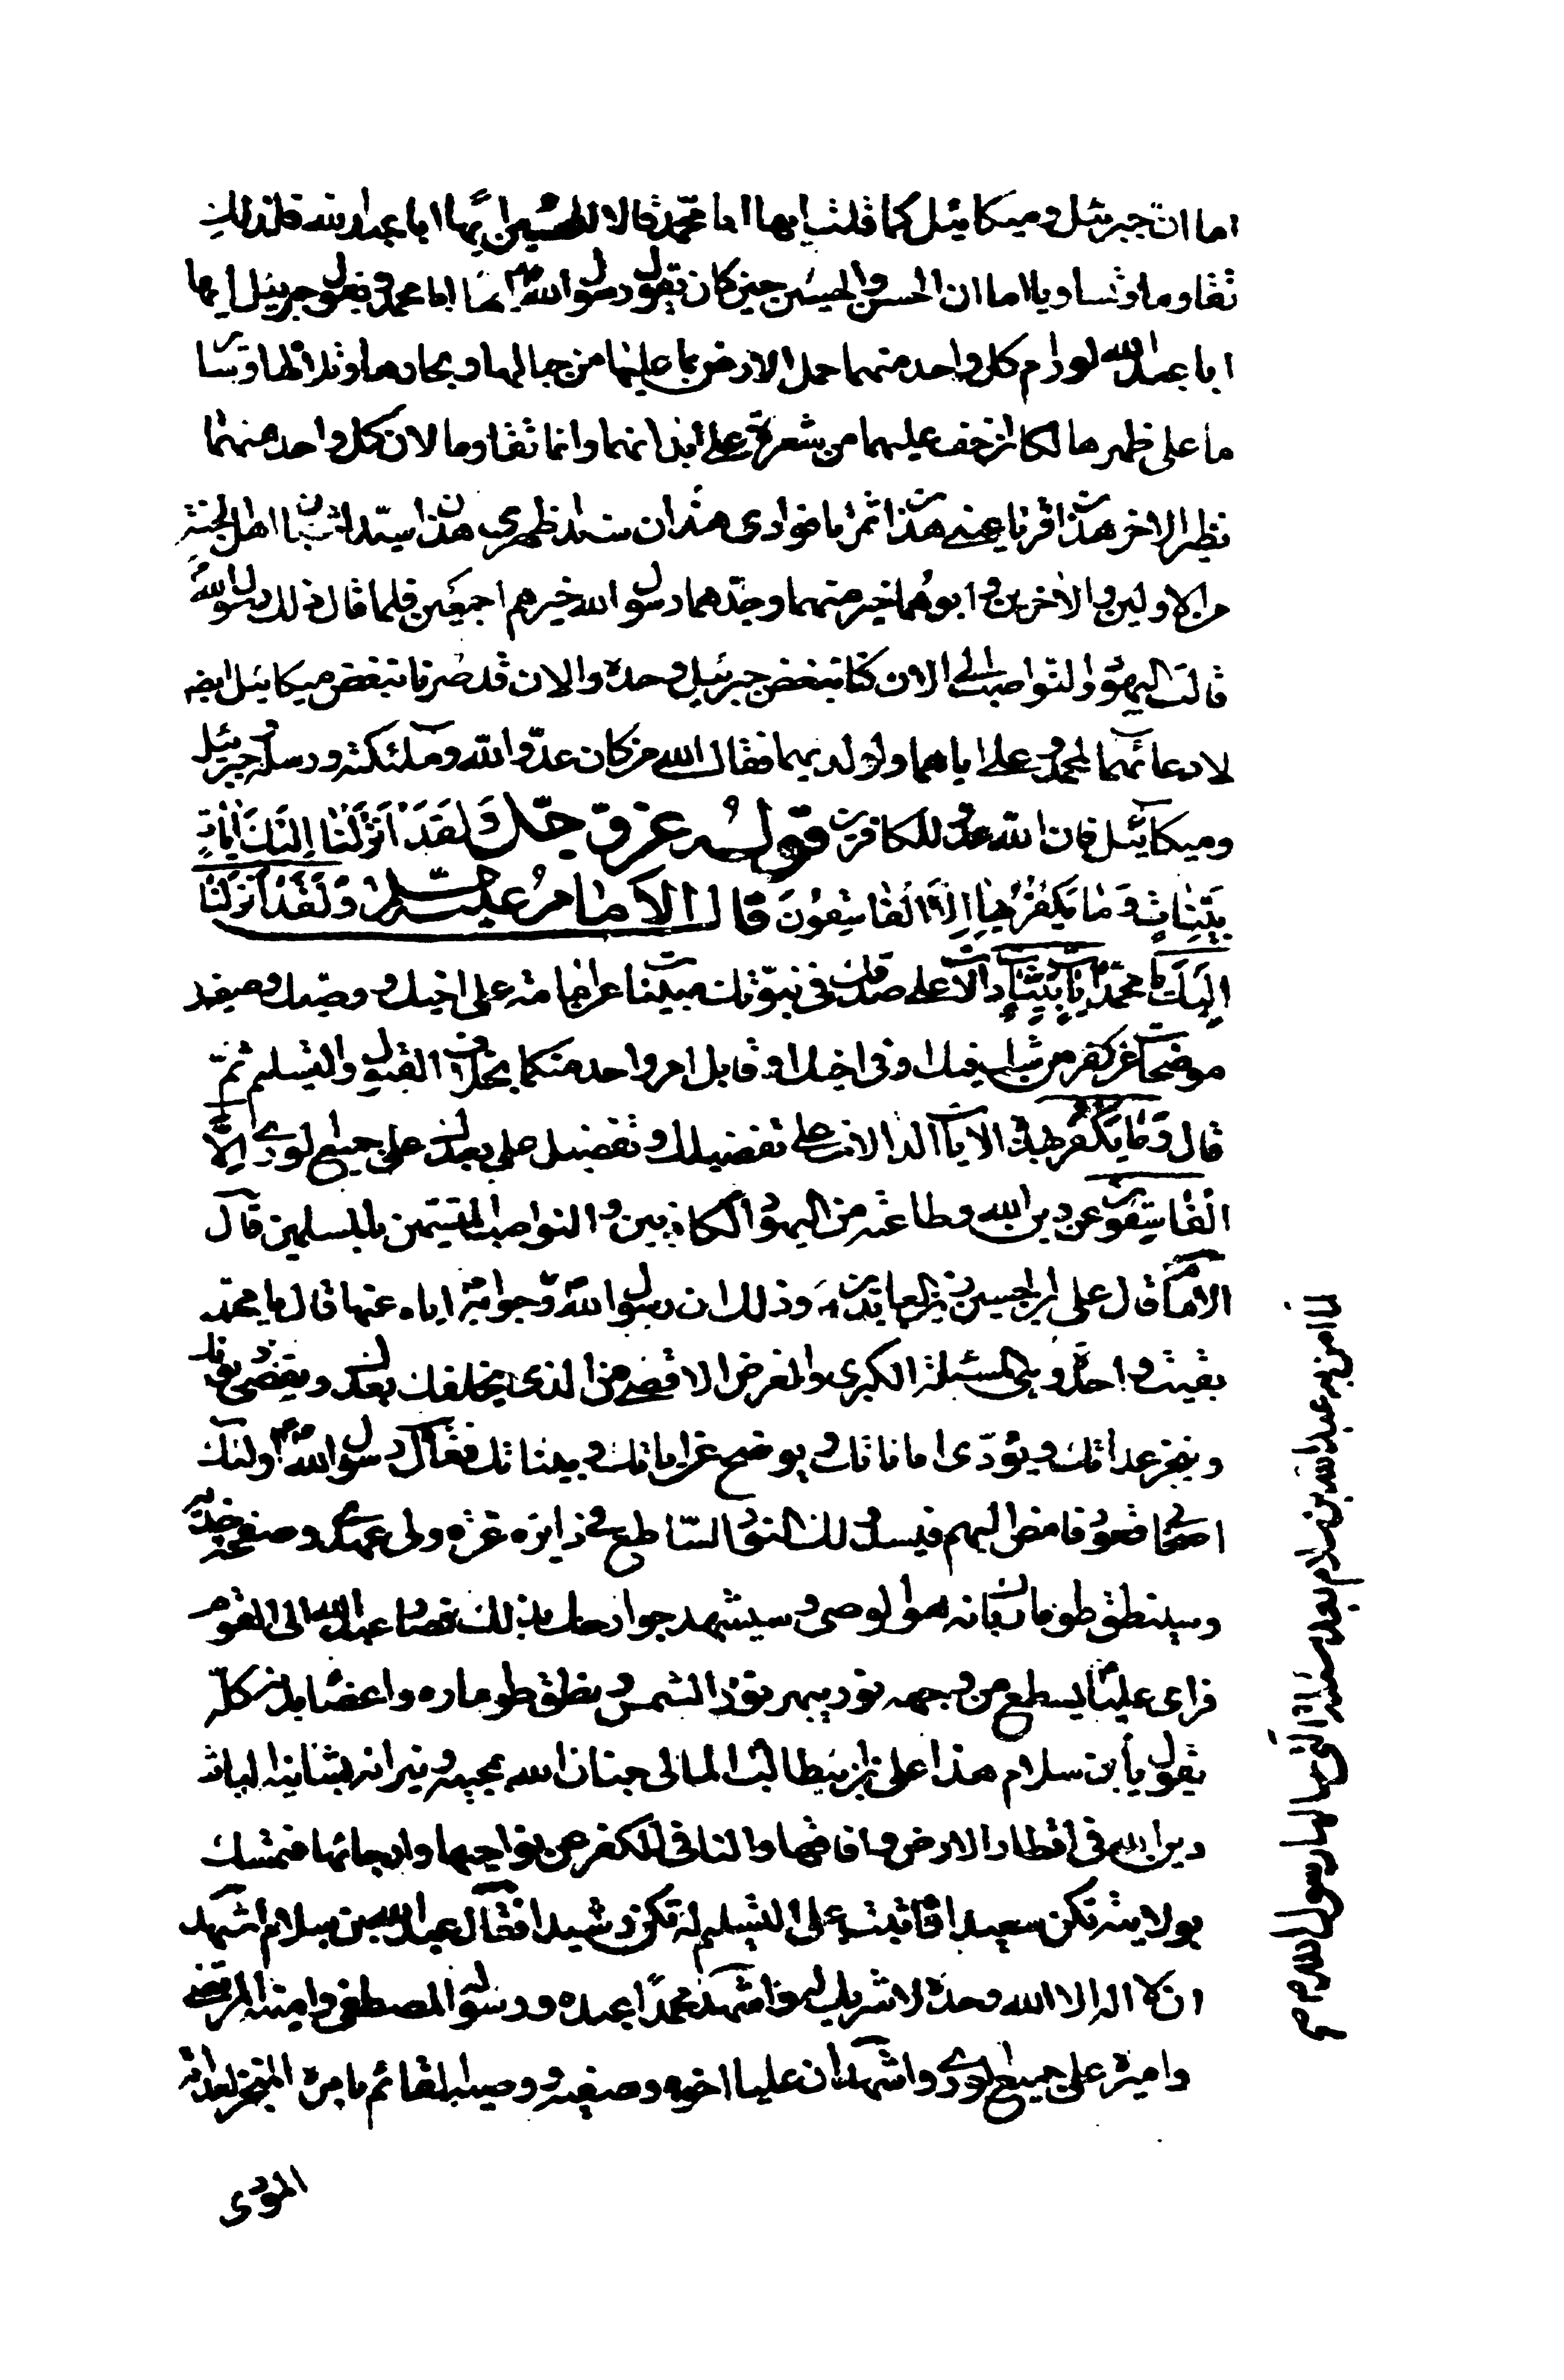 اما ان جبرئيل وميكائيل كما قلت ايها ابا محمد قالا للحسين ايها ابا عبد الله فلذلك
تقاوما وتساويا اما ان الحسن والحسين حين كان يقول رسول الله ايها ابا محمد ويقول جبرئيل ايها
ابا عبد الله لو رام كل واحد منهما حمل الارض بما عليها من جبالها وبحارها وتلالها وسائر
ما على ظهرها لكان اخف عليهما من شعرة على ابدانهما وانما تقاوما لان كل واحد منهما
نظير الاخر هذان قرتا عينى هذان ثمرتا فوادى هذان سندا ظهرى هذان سيدا شباب اهل الجنة
من الاولين والاخرين وابوهما خير منهما وجدهما رسول الله خيرهم اجمعين فلما قال ذلك رسول الله
قالت اليهود والنواصب الى الان كنا نبغض جبرئيل وحده والان قد صرنا نبغض ميكائيل ايضه
لادعائهما لمحمد وعلى اياهما ولولديهما فقال الله من كان عدوا لله وملئكته ورسله وجبرئيل
وميكائيل فان الله عدو للكافرين قوله عز وجل وَلَقَدْ اَنْزَلْنَا اِلَيْكَ اٰيٰاتٍ
بَيِّنٰاتٍ وَمٰا يَكْفُرُ بِهٰا اِلَّا الْفٰاسِقُونَ قال الامام عليه السلم وَلَقَدْ اَنْزَلْنٰا
اِلَيْكَ يا محمد اٰيٰاتٍ بَيِّنٰاتٍ دالات على صدقك فى نبوتك مبينات عن امامة على اخيك ووصيك وصفيك
موضحات عن كفر من شك فيك او فى اخيك او قابل امر واحد منكما بخلاف القبول والتسليم ثم
قال وَمٰا يَكْفُرُ بهذه الايات الدالات على تفضيلك وتفضيل على بعدك على جميع الورى اِلَّا
الْفٰاسِقُونَ عن دين الله وطاعته من اليهود الكاذبين والنواصب المتسمين بالمسلمين قال
الامام قال على بن الحسين زين العابدين وذلك ان رسول الله وجوابه اياه عنها قال يا محمد
بقيت واحدة وهى المسئلة الكبرى والغرض الاقصى من الذى يخلفك بعدك ويقضى ديونك
وينجز عداتك ويؤدى اماناتك ويوضح عن اياتك وبيناتك فقال رسول الله اولئك
اصحابى قعود فامض اليهم فسيدلك النور الساطع فى دايرة غرة ولى عهدى وصفحة خديه
وسينطق طومارك بانه هو الوصى وسيشهد جوارحك بذلك فصار عبد الله الى القوم
فراى عليا يسطع من وجهه نور يبهر نور الشمس ونطق طوماره واعضاء بدنه كل
يقول يا بن سلام هذا على بن ابيطالب المالى جنان الله بمحبيه ونيرانه بشانئيه الباث
دين الله فى اقطار الارض وافاقها والنافى للكفر عن نواحيها وارجائها فتمسك
بولايته تكن سعيدا واثبت على التسليم له تكن رشيدا فقال عبد الله بن سلام اشهد
ان لا اله الا الله وحده لا شريك له واشهد ان محمدا عبده ورسوله المصطفى وامينه المرتضى
واميره على جميع الورى واشهد ان عليا اخوه وصفيه ووصيه القائم بامره المنجز لعداته
المؤدى
لما امن به عبد الله بن سلام بعد مسائله التى سالها رسول الله